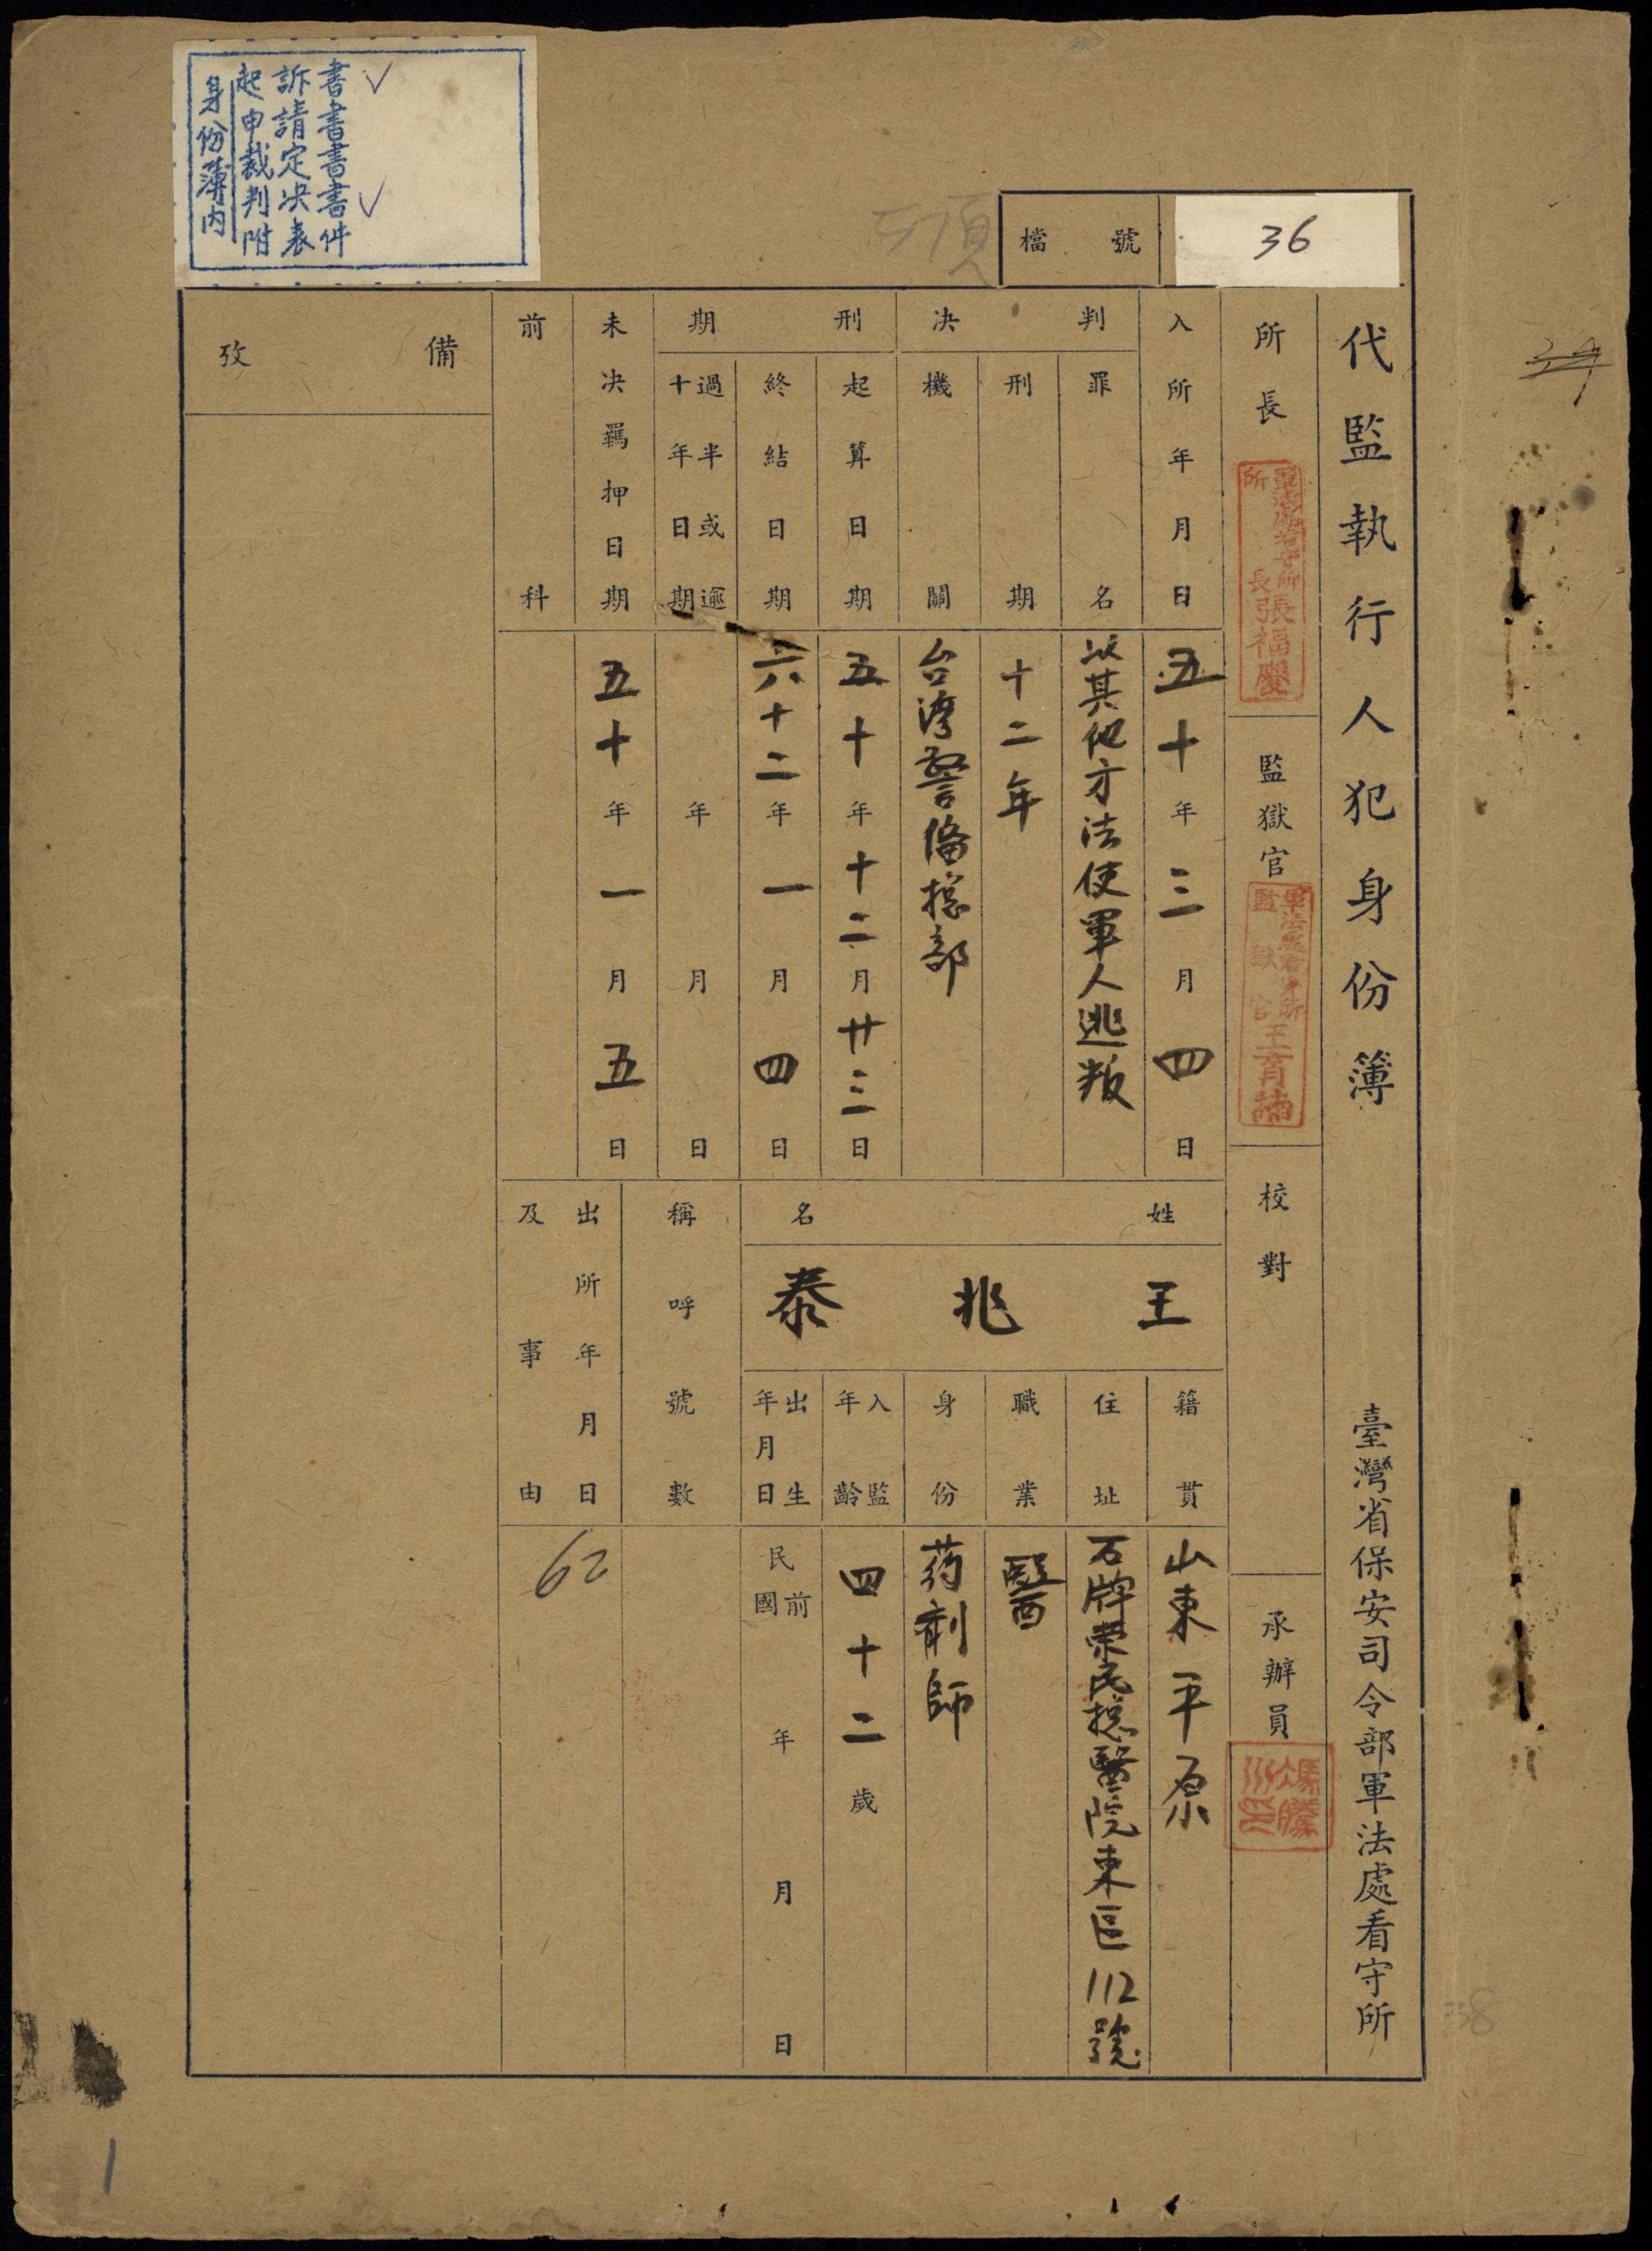 身份簿內
起訴書 ✓
申請書
裁定書
判決書 ✓
附表件
檔號
36
34
代監執行人犯身份簿
臺灣省保安司令部軍法處看守所
所長
軍法處看守所
所長張福慶
監獄官
軍法處看守所
監獄官王育
校對
承辦員
馮騰
川印
入所年月日
五十年三月四日
判決
罪名
以其他方法使軍人逃叛
刑期
十二年
機關
台湾警俻総部
刑期
起算日期
五十年十二月廿三日
終結日期
六十二年一月四日
過半或逾
十年日期
年月日
未決羈押日期
五十年一月五日
前科
備攷
姓名
王兆泰
籍貫
山東平原
住址
石牌荣民総醫院東區112號
職業
醫
身份
药剤師
入監
年齡
四十二歲
出生
年月日
民國前 年月日
稱呼號數
出所年月日
及事由
62
38
1